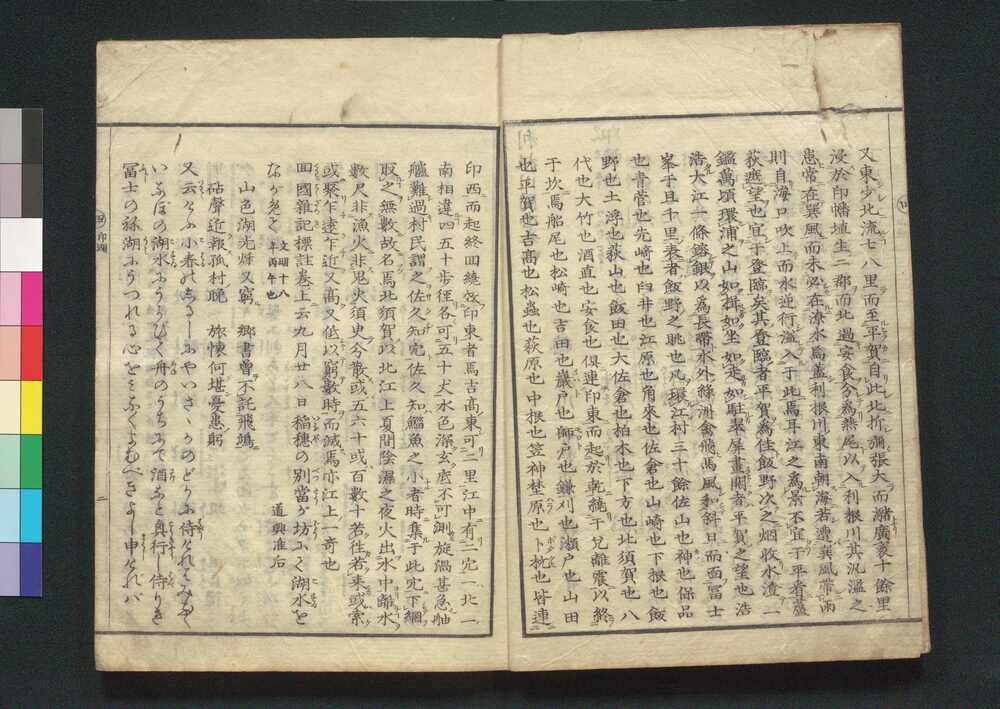 又東少北流七八里而至平賀自此北折瀰張大而瀦廣袤十餘里
浸於印幡埴生二郡而北過安食分為燕尾以入利根川其汎濫之
患常在巽風而未必在潦水焉蓋利根川東南朝海若遭巽風帶雨
則自海口吹上而水逆行溢入于此焉耳江之為景不宜于平者蘆
荻遮望也宜于登臨矣其登臨者平賀為佳飯野次之烟收水渣一
鑑萬頃環浦之山如揖如坐如走如駐翠屏畫闢者平賀之望也浩
浩大江一條鎔銀以為長帶水外絲洲禽飛馬風和斜日而面冨士
峯于且千里表者飯野之眺也凡環江村三十餘佐山也神也保品
也青菅也先崎也臼井也江原也角來也佐倉也山崎也下根也飯
野也土浮也荻山也飯田也大佐倉也柏木也下方也北須賀也八
代也大竹也酒直也安食也俱連印東而起於乾繞于兌離震以終
于坎馬船尾也松崎也吉田也巖戸也師戸也鎌刈也瀬戸也山田
也平賀也吉高也松蟲也荻原也中根也笠神埜原也卜杭也皆連
印西而起終回繞印東者馬吉高東可二里江中有二宂一北一
南相違四五十步徑各可五十丈水色深玄底不可測旋渦甚急舳
艫難過村民謂之佐久知宂佐久知鯔魚之小者時集于此宂下網
取之無數故名馬北須賀以北江上夏間陰濕之夜火出水中離水
數尺非漁火非鬼火須臾分散或五六十或百數十若徃若来或索
或聚乍遠乍近又高又低以窮數時而滅焉亦江上一奇也
回國雜記標註卷上云九月廿八日稲穂の別當が坊にて湖水を
ながめて 文明十八年丙午也 道興准后
山色湖光爍又窮 郷書曽不託飛鴻
砧聲近報孤村晩 旅懷何堪憂患躬
又云けふ小春のしるしにやいさゝかのどかに侍けれとみるて
いなほの湖水にうかびて舟のうちにて酒など真行し侍りき
冨士の嶺湖にうつれる心をミなくよむべきよし申けれバ
印旛
二